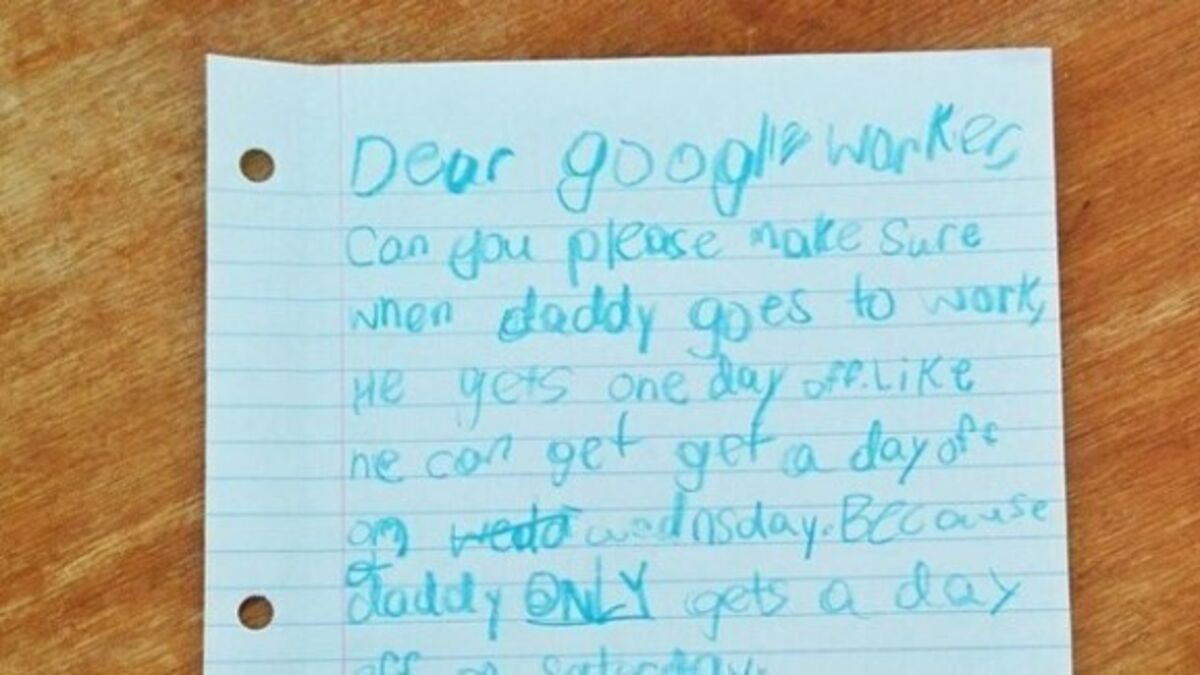 Dear google worker,
Can you please make sure
when daddy goes to work,
He gets one day off. Like
he can get get a day off
on wednsday. Because
daddy ONLY gets a day
off on saturday.